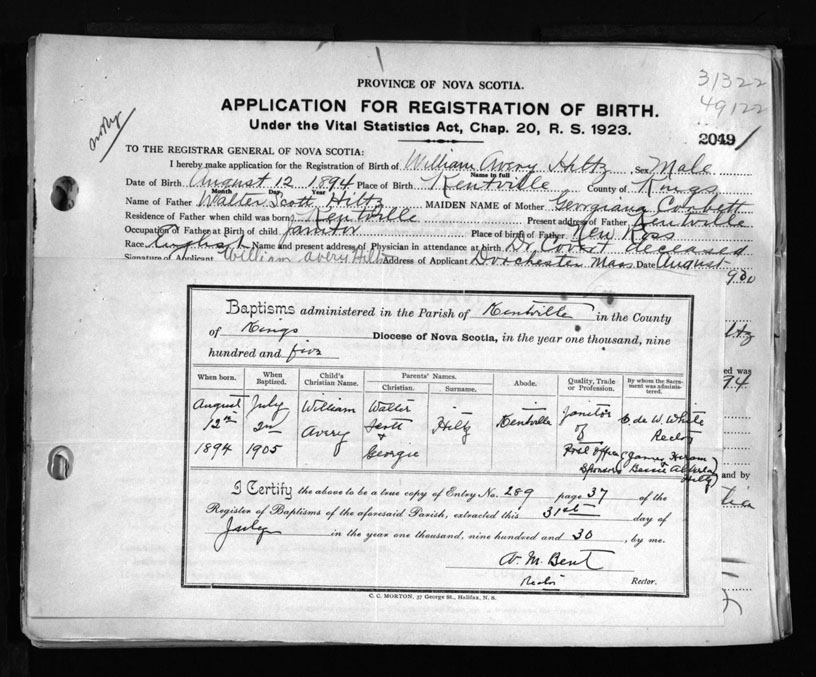 31322
49122
PROVINCE OF NOVA SCOTIA.
APPLICATION FOR REGISTRATION OF BIRTH.
Under the Vital Statistics Act, Chap. 20, R. S. 1923.
2049
TO THE REGISTRAR GENERAL OF NOVA SCOTIA:
I hereby make application for the Registration of Birth of William Avery Hiltz Sex Male
Name in full
Date of Birth August 12 1894 Place of Birth Kentville County of Kings
Month Day Year
Name of Father Walter Scott Hiltz MAIDEN NAME of Mother Georgiana Corbett
Residence of Father when child was born Kentville Present address of Father Kentville
Occupation of Father at Birth of child janitor Place of birth of Father New Ross
Race English Name and present address of Physician in attendance at birth Dr. deceased
Signature of Applicant William Avery Hiltz Address of Applicant Dorchester Mass Date August
930
Baptisms administered in the Parish of Kentville in the County
of Kings Diocese of Nova Scotia, in the year one thousand, nine
hundred and five
When born. When Baptized. Child's Christian Name. Parents' Names. Christian. Surname. Abode. Quality, Trade or Profession. By whom the Sacrament was administered.
August July William Walter Hiltz Kentville Janitor C de W. White
12th 2nd Avery Scott of Rector
1894 1905 & Georgie Post Office (James Hiram
Sponsors Bessie Alberta Hiltz)
I Certify the above to be a true copy of Entry No. 289 page 37 of the
Register of Baptisms of the aforesaid Parish, extracted this 31st day of
July in the year one thousand, nine hundred and 30, by me.
A. M. Bent
Rector Rector.
C. C. MORTON, 37 George St., Halifax, N. S.
ltz
ed was
94
and by